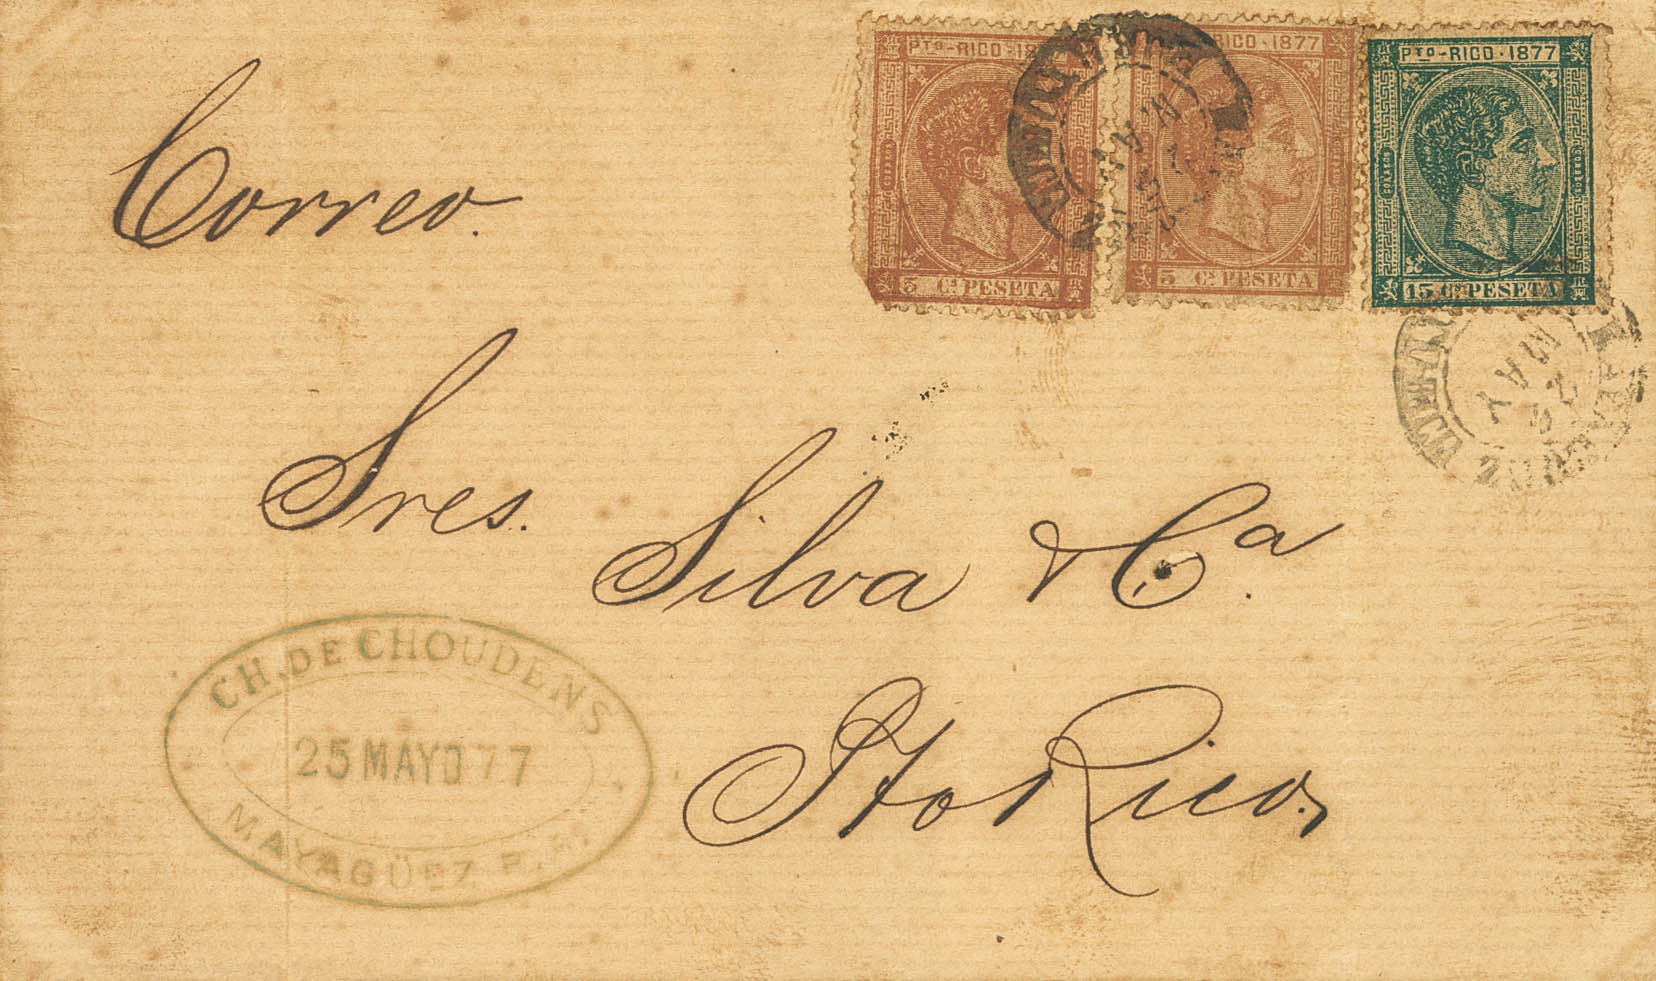 PTO-RICO·18
5 Cs PESETA
RICO·1877
5 Cs PESETA
PTO-RICO·1877
15 Cs PESETA
MAY
MAY
Correo.
Sres. Silva & Ca.
Pto Rico.
CH. DE CHOUDENS
25 MAYO 77
MAYAGÜEZ P. R.